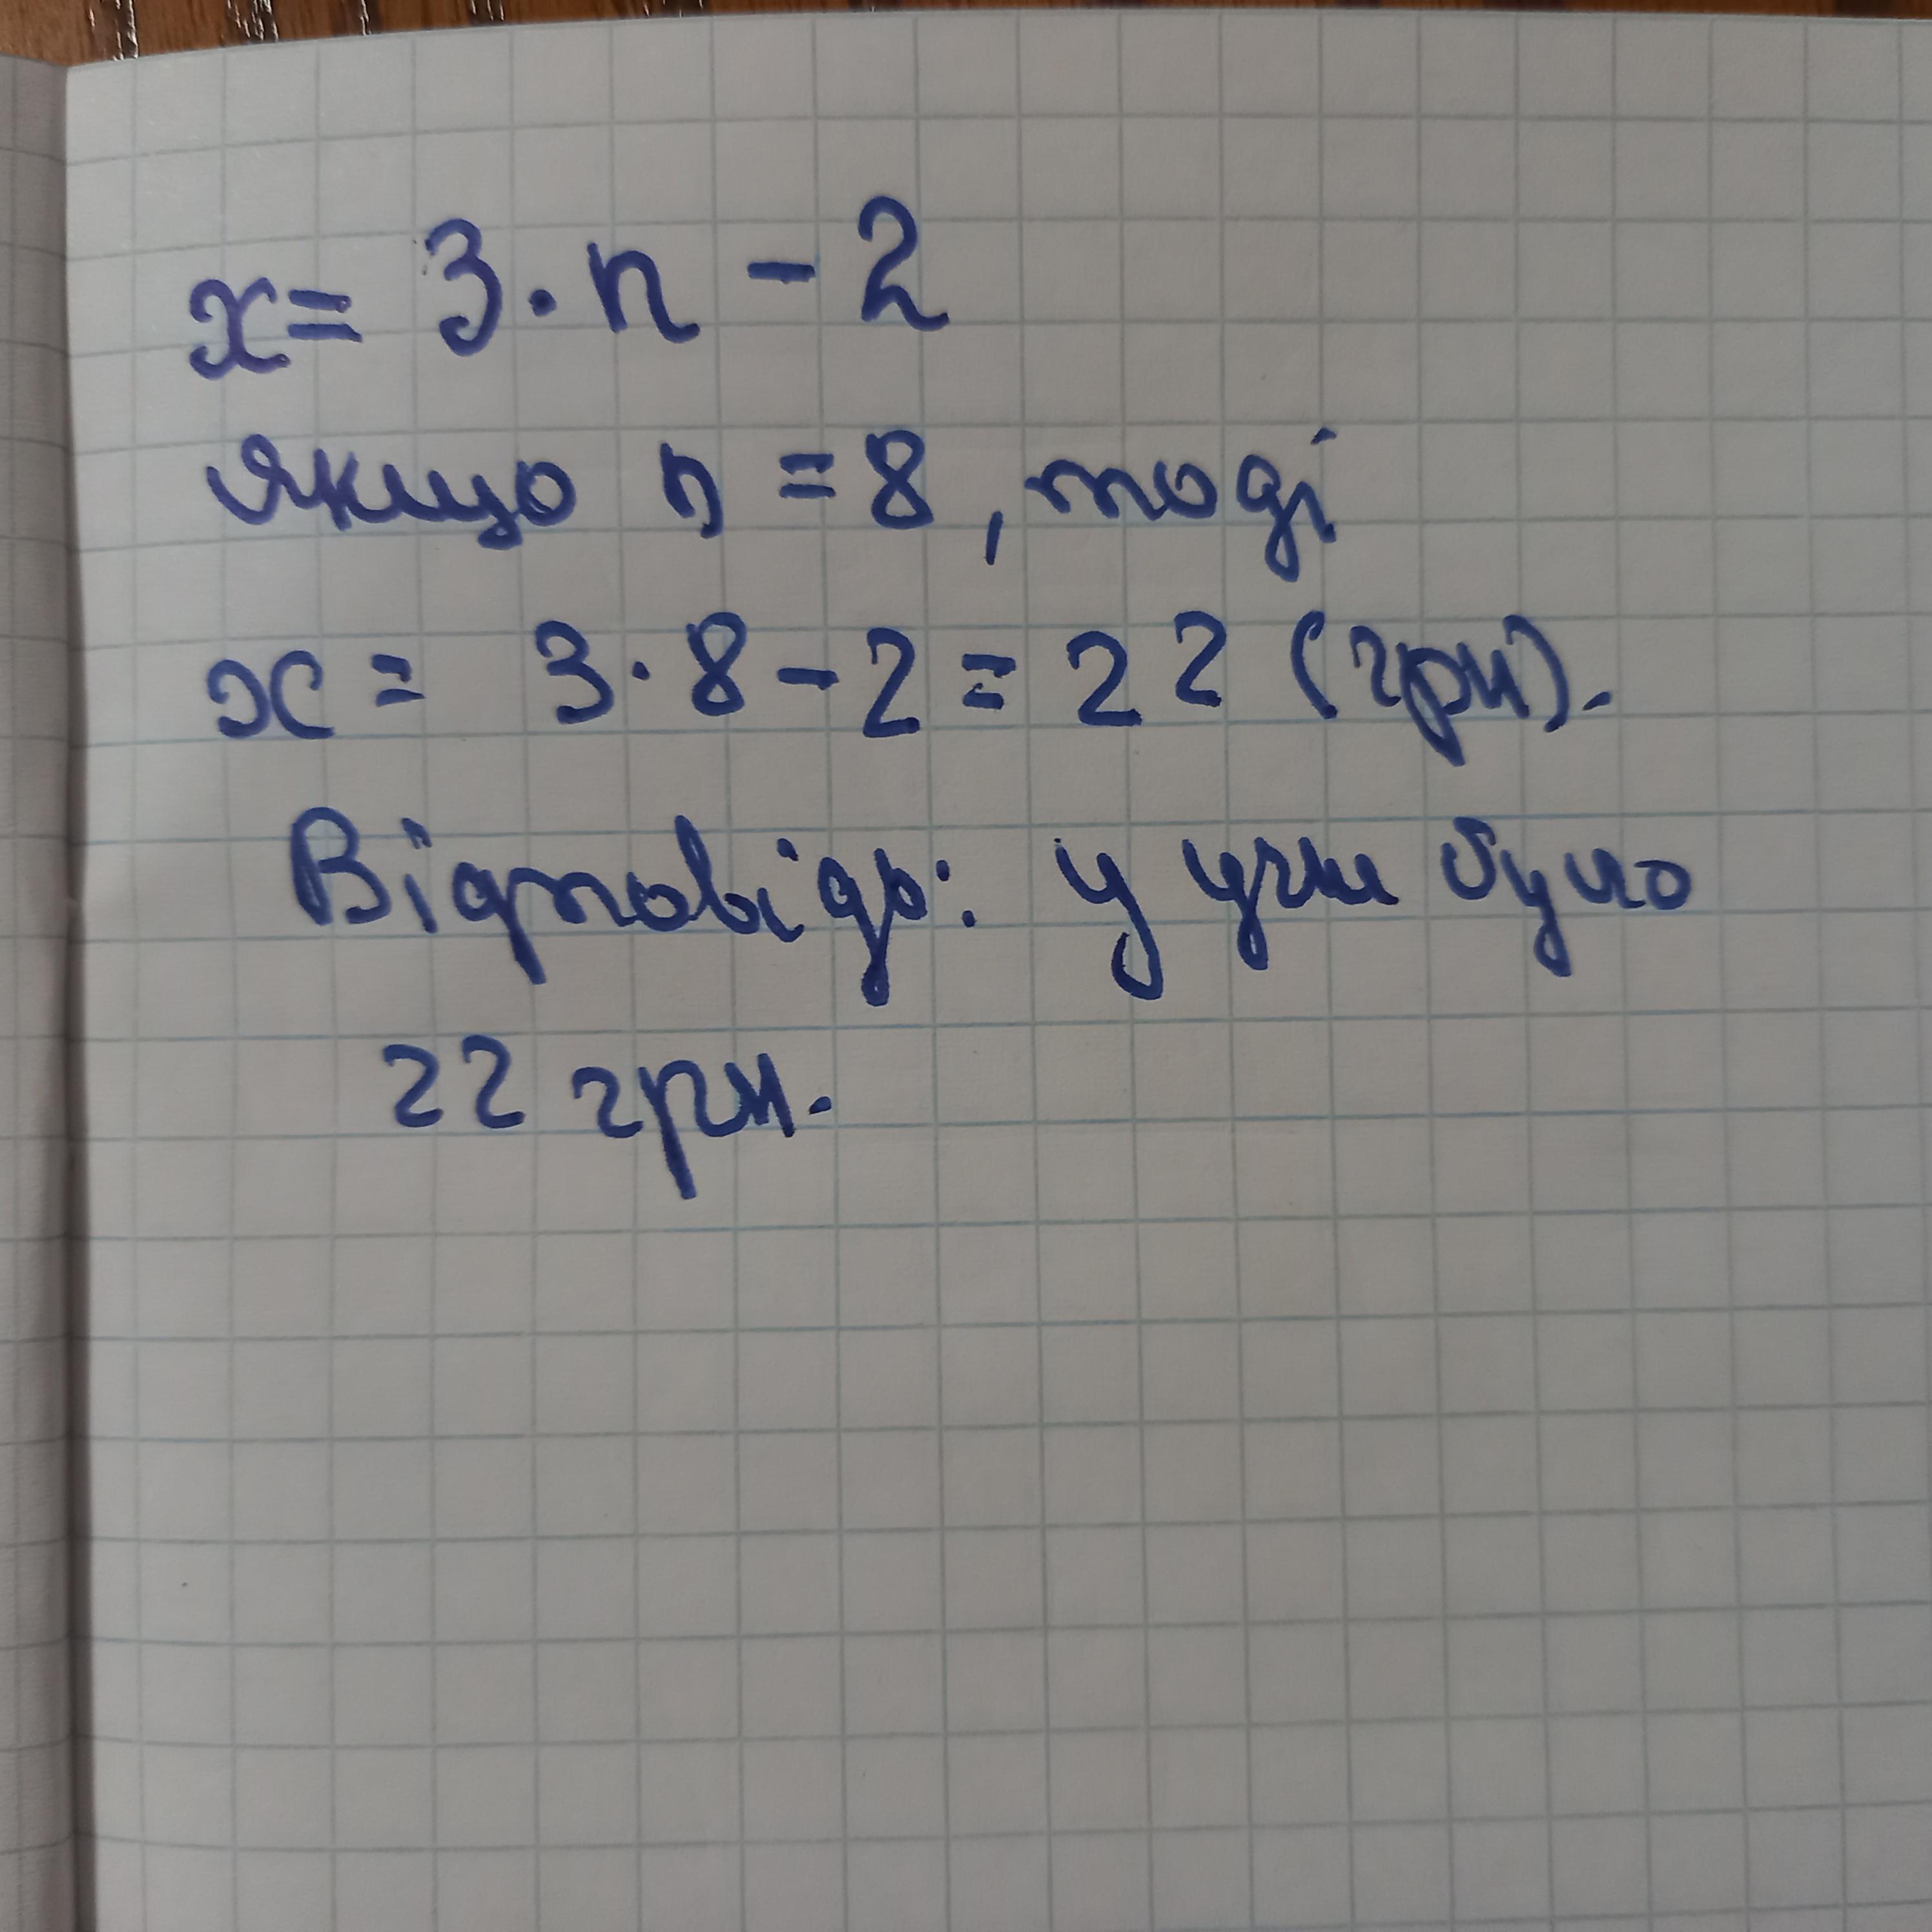 x = 3 · n - 2
якщо n = 8, тоді
x = 3 · 8 - 2 = 22 (грн).
Відповідь: у було
22 грн.